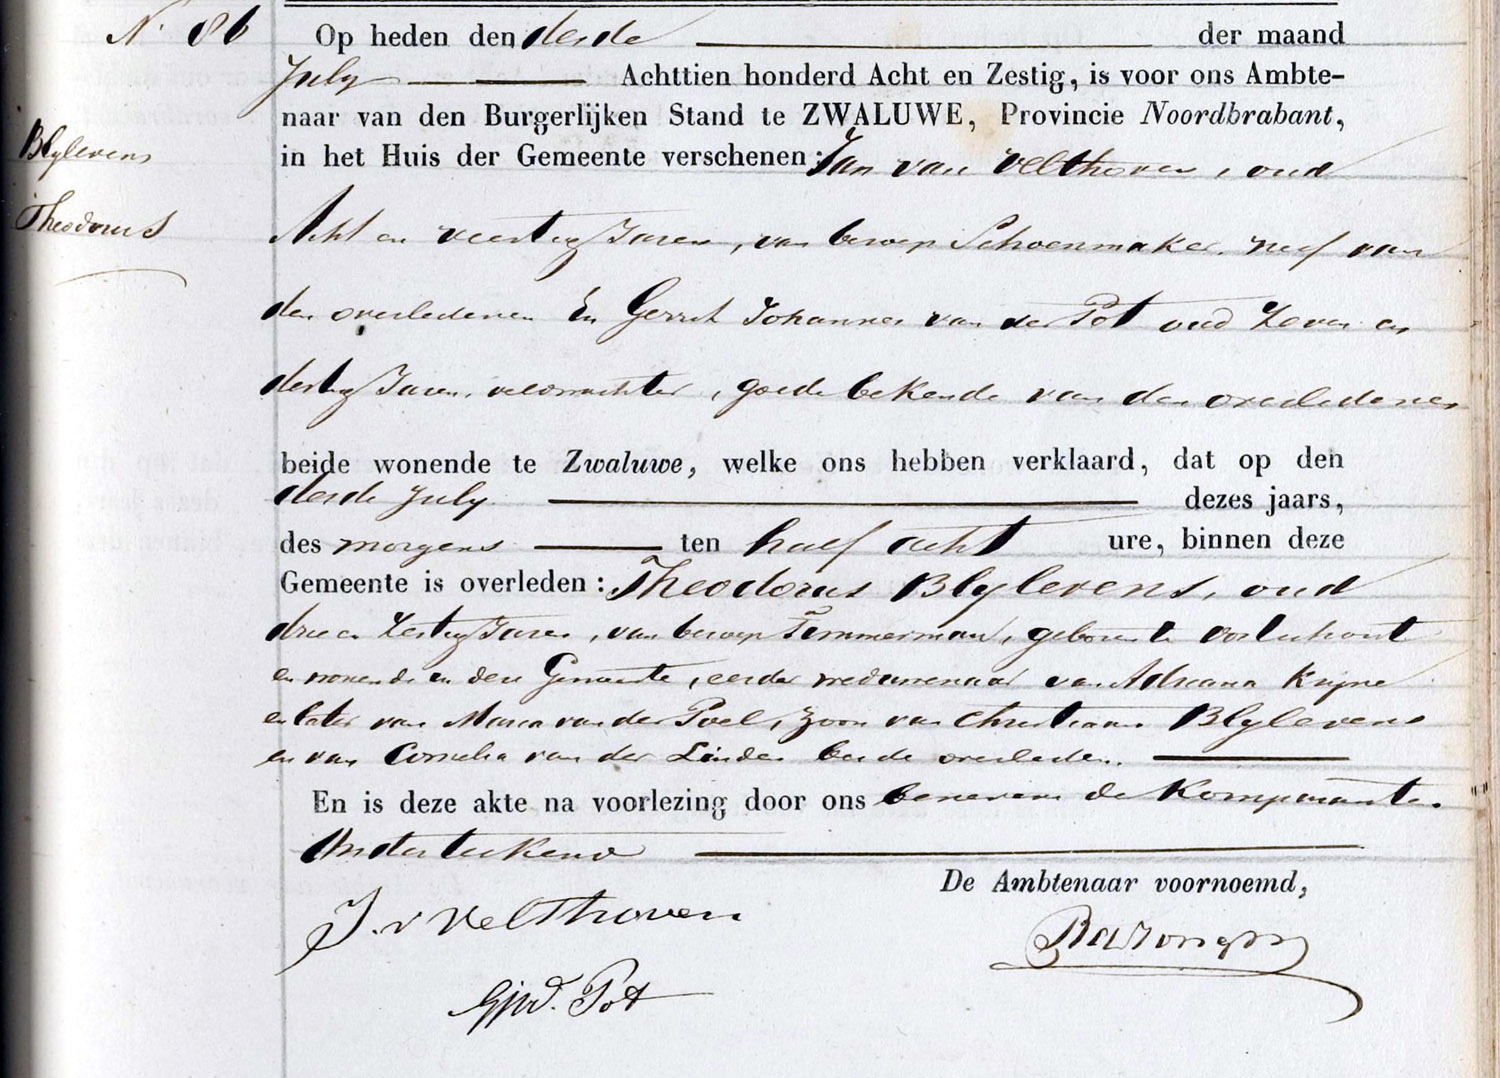 N. 86
Blylevens
Theodorus
Op heden den derde der maand
July Achttien honderd Acht en Zestig, is voor ons Ambte-
naar van den Burgerlijken Stand te ZWALUWE, Provincie Noordbrabant,
in het Huis der Gemeente verschenen: Jan van Velthoven, oud
Acht en veertig Jaren, van beroep Schoenmaker, neef van
den overledenen En Gerrit Johannes van der Pot oud Zeven en
dertig Jaren, veldwachter, goede bekende van den overledenen
beide wonende te Zwaluwe, welke ons hebben verklaard, dat op den
derde July dezes jaars,
des morgens ten half acht ure, binnen deze
Gemeente is overleden: Theodorus Blylevens, oud
drie en Zestig Jaren, van beroep Timmerman, geboren te Oosterhout
en wonende in deze Gemeente, eerder weduwenaar van Adriana Krijne
en later van Maria van der Poel, Zoon van Christiaan Blylevens
en van Cornelia van der Linden beide overleden.
En is deze akte na voorlezing door ons benevens de Komparanten
Onderteekend
De Ambtenaar voornoemd,
J. v Velthoven
GJvd. Pot